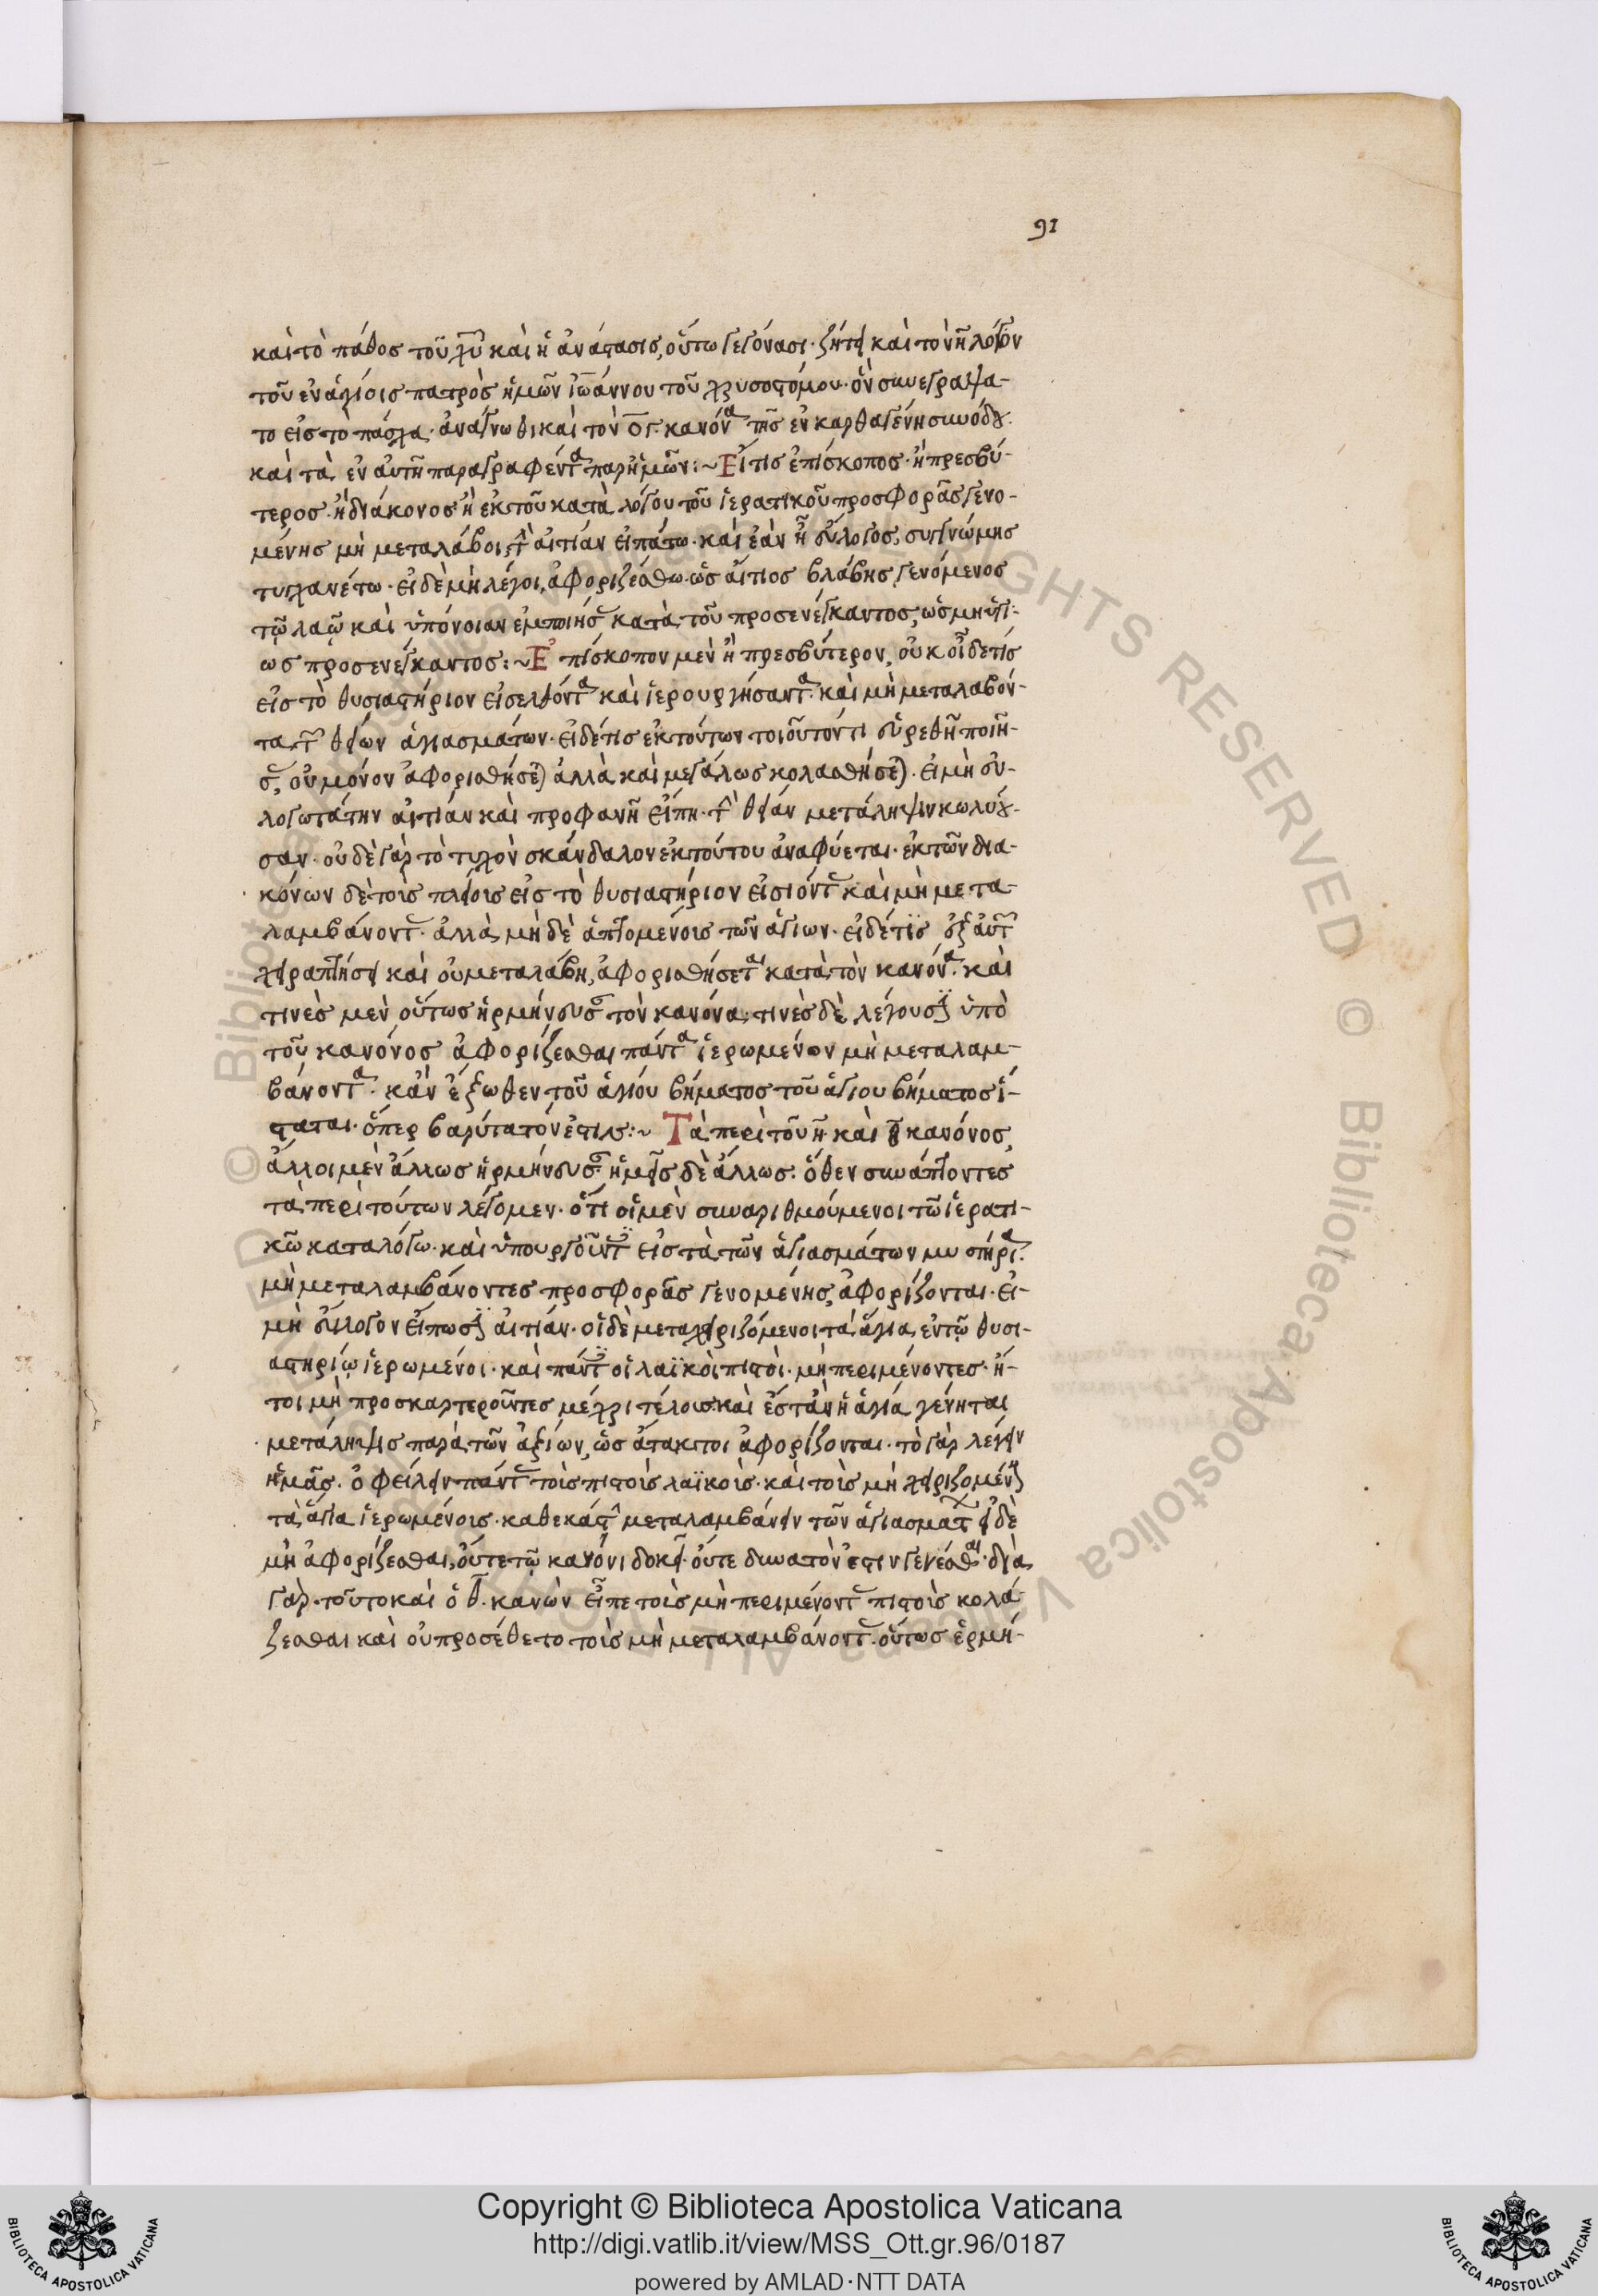 91
καὶ τὸ πάθος τοῦ χ̅υ̅ καὶ ἡ ἀνάστασις, οὕτω γεγόνασι· ζήτει καὶ τὸν η̅ λόγον
τοῦ ἐν ἁγίοις πατρὸς ἡμῶν ἰω̅άννου τοῦ χρυσοστόμου· ὃν συνεγράψα-
το εἰς τὸ πάσχα· ἀνάγνωθι καὶ τὸν ο̅γ̅ κανόνα τῆς ἐν καρθαγένη συνόδου·
καὶ τὰ ἐν αὐτῆ παραγραφέντα παρ' ἡμῶν:~ Εἴ τις ἐπίσκοπος· ἢ πρεσβύ-
τερος· ἢ διάκονος ἢ ἐκ τοῦ καταλόγου τοῦ ἱερατικοῦ προσφορᾶς γενο-
μένης μὴ μεταλάβοι, τὴν αἰτίαν εἰπάτω· καὶ ἐὰν ἦ εὔλογος, συγγνώμης
τυγχανέτω· εἰ δὲ μὴ λέγοι, ἀφοριζέσθω· ὡς αἴτιος βλάβης γενόμενος
τῷ λαῷ καὶ ὑπόνοιαν ἐμποιήσας κατὰ τοῦ προσενέγκαντος, ὡς μὴ ὑγι-
ῶς προσενέγκαντος:~ Ἐπίσκοπον μὲν ἢ πρεσβύτερον, οὐκ οἶδέ τις
εἰς τὸ θυσιαστήριον εἰσελθόντα καὶ ἱερουργήσαντα· καὶ μὴ μεταλαβόν-
τα τῶν θείων ἁγιασμάτων· εἰ δέ τις ἐκ τούτων τοιοῦτόν τι εὑρεθῆ ποιή-
σας, οὐ μόνον ἀφορισθήσεται ἀλλὰ καὶ μεγάλως κολασθήσεται· εἰ μὴ εὐ-
λογωτάτην αἰτίαν καὶ προφανῆ εἴπη· τὴν θείαν μετάληψιν κωλύου-
σαν· οὐδὲ γὰρ τὸ τυχὸν σκάνδαλον ἐκ τούτου ἀναφύεται· ἐκ τῶν δια-
κόνων δὲ τοῖς πλείοις εἰς τὸ θυσιαστήριον εἰσιόντας καὶ μὴ μετα-
λαμβάνοντας· ἀλλὰ μὴ δὲ ἁπτομένοις τῶν ἁγίων· εἰ δέ τις ἐξ αὐτῶν
χειραπτήσει καὶ οὐ μεταλάβη, ἀφορισθήσεται κατὰ τὸν κανόνα· καὶ
τινὲς μὲν οὕτως ἡρμήνευσαν τὸν κανόνα, τινὲς δὲ λέγουσιν ὑπὸ
τοῦ κανόνος ἀφορίζεσθαι πάντα ἱερωμένον μὴ μεταλαμ-
βάνοντα· κἂν ἔξωθεν τοῦ ἁγίου βήματος τοῦ ἁγίου βήματος ἵ-
σταται· ὅπερ βαρύτατόν ἐστιν:~ Τὰ περὶ τοῦ η̅ καὶ θ̅ κανόνος,
ἄλλοι μὲν ἄλλως ἡρμήνευσαν· ἡμεῖς δὲ ἄλλως· ὅθεν συνάπτοντες
τὰ περὶ τούτων λέγομεν· ὅτι οἱ μὲν συναριθμούμενοι τῶ ἱερατι-
κῶ καταλόγω· καὶ ὑπουργοῦντες εἰς τὰ τῶν ἁγιασμάτων μυστήρια·
μὴ μεταλαμβάνοντες προσφορᾶς γενομένης, ἀφορίζονται· εἰ-
μὴ εὔλογον εἴπωσιν αἰτίαν· οἱ δὲ μεταχειριζόμενοι τὰ ἅγια ἐν τῷ θυσι-
αστηρίῳ ἱερωμένοι· καὶ πάντες οἱ λαϊκοὶ πιστοί· μὴ περιμένοντες· ἤ-
τοι μὴ προσκαρτεροῦντες μέχρι τέλους καὶ ἔστ' ἂν ἡ ἁγία γένηται
μετάληψις παρὰ τῶν ἀξίων, ὡς ἄτακτοι ἀφορίζονται· τὸ γὰρ λέγειν
ἡμᾶς· ὀφείλειν πάντας τοῖς πιστοῖς λαϊκοῖς· καὶ τοῖς μὴ χειριζομένοις
τὰ ἅγια ἱερωμένοις· καθεκάστην μεταλαμβάνειν τῶν ἁγιασμάτων εἰ δὲ
μὴ ἀφορίζεσθαι, οὔτε τῷ κανόνι δοκεῖ· οὔτε δυνατὸν ἐστιν γενέσθαι· διὰ
γὰρ τοῦτο καὶ ὁ θ̅ κανὼν εἶπε τοῖς μὴ περιμένοντας πιστοῖς κολά
ζεσθαι καὶ οὐ προσέθετο τοῖς μὴ μεταλαμβάνοντας· οὕτως ἑρμή-
Copyright © Biblioteca Apostolica Vaticana
http://digi.vatlib.it/view/MSS_Ott.gr.96/0187
powered by AMLAD·NTT DATA